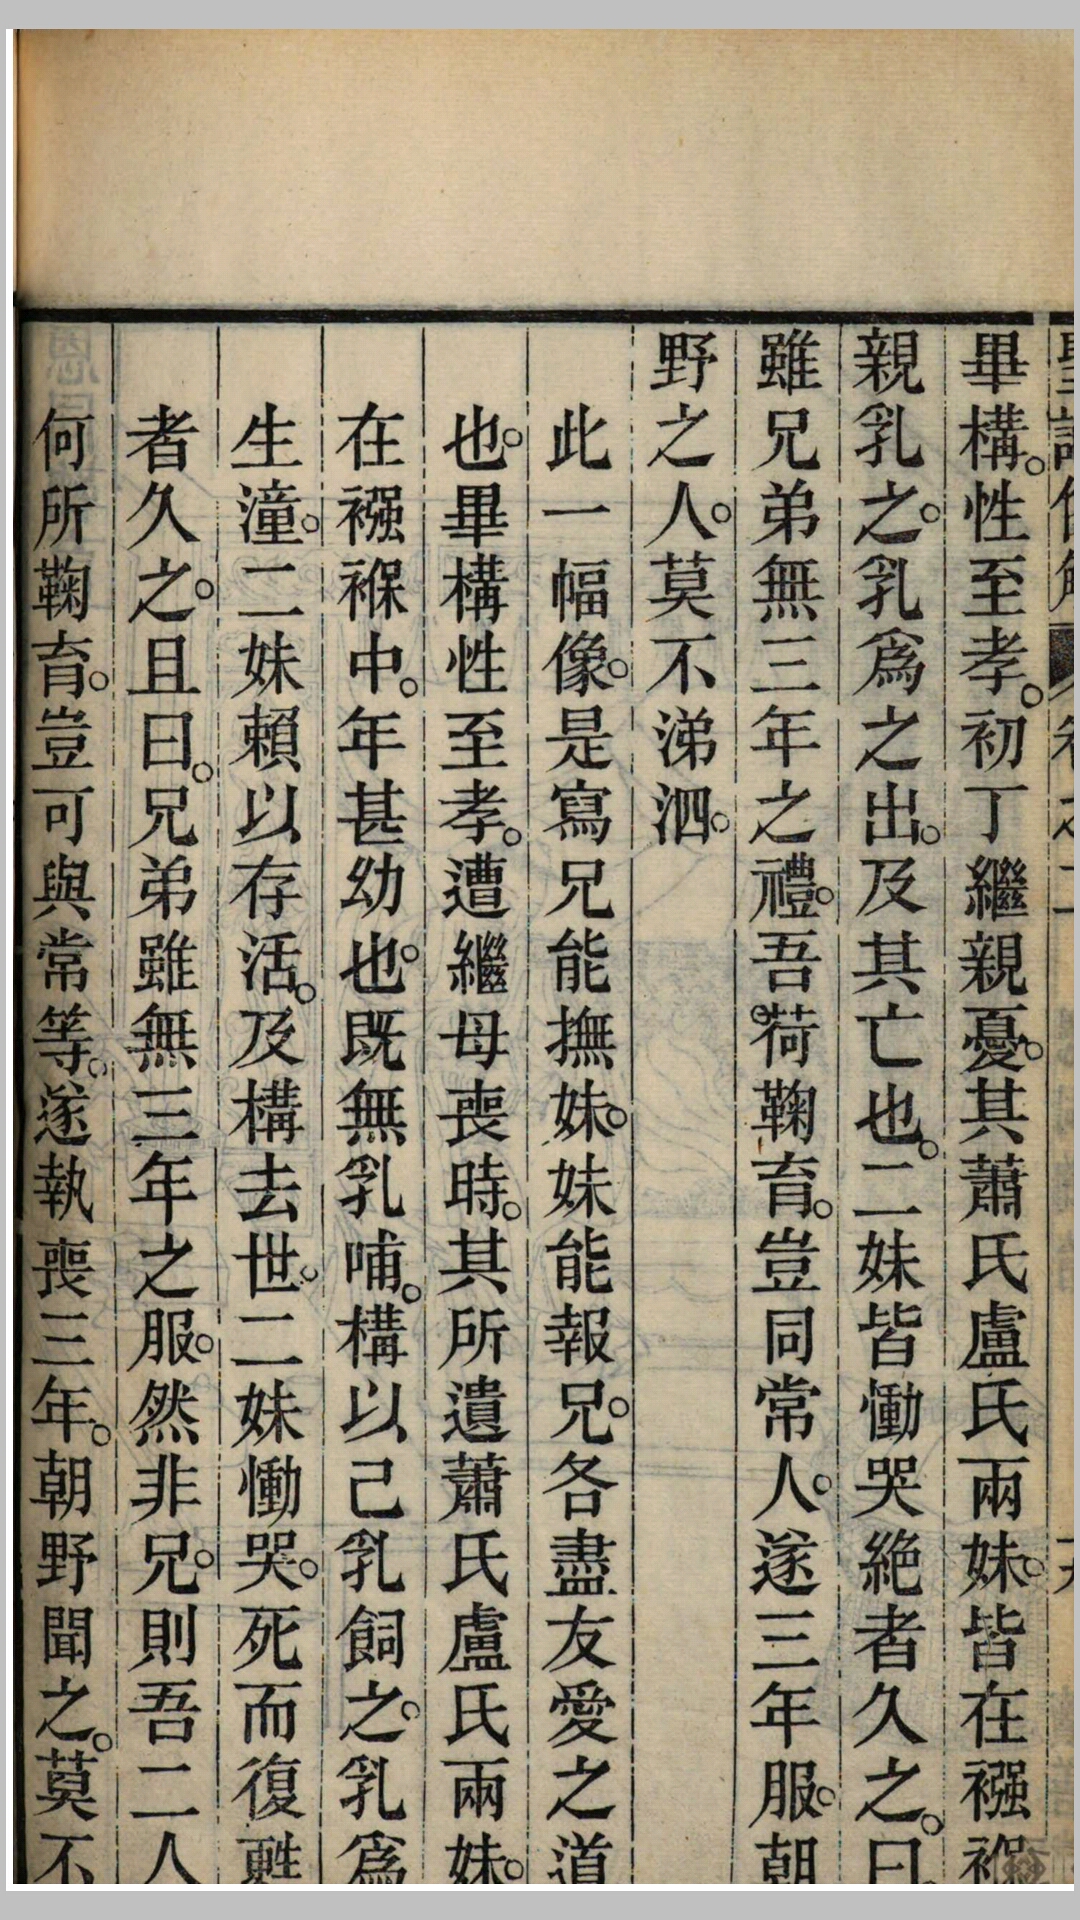 畢構。性至孝。初丁繼親憂。其蕭氏盧氏兩妹。皆在襁褓
親乳之。乳爲之出。及其亡也。二妹皆慟哭絶者久之。曰。
雖兄弟無三年之禮。吾荷鞠育。豈同常人。遂三年服。朝
野之人。莫不涕泗。
此一幅像。是寫兄能撫妹。妹能報兄。各盡友愛之道
也。畢構性至孝。遭繼母喪時。其所遺蕭氏盧氏兩妹。
在襁褓中。年甚幼也。既無乳哺。構以己乳飼之。乳爲
生湩。二妹賴以存活。及構去世。二妹慟哭。死而復甦
者久之。且曰。兄弟雖無三年之服。然非兄。則吾二人
何所鞠育。豈可與常等。遂執喪三年。朝野聞之。莫不